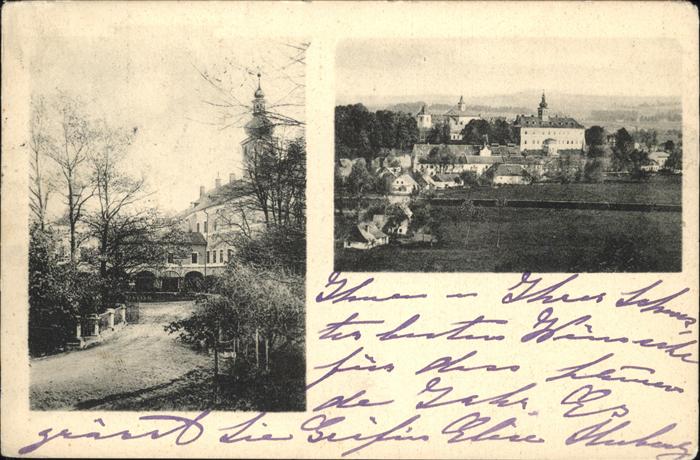 Ihnen u Ihrer Schwes
ter besten Wünsche
für das kom
de Jahr Es
grüsst Sie Gräfin Elise